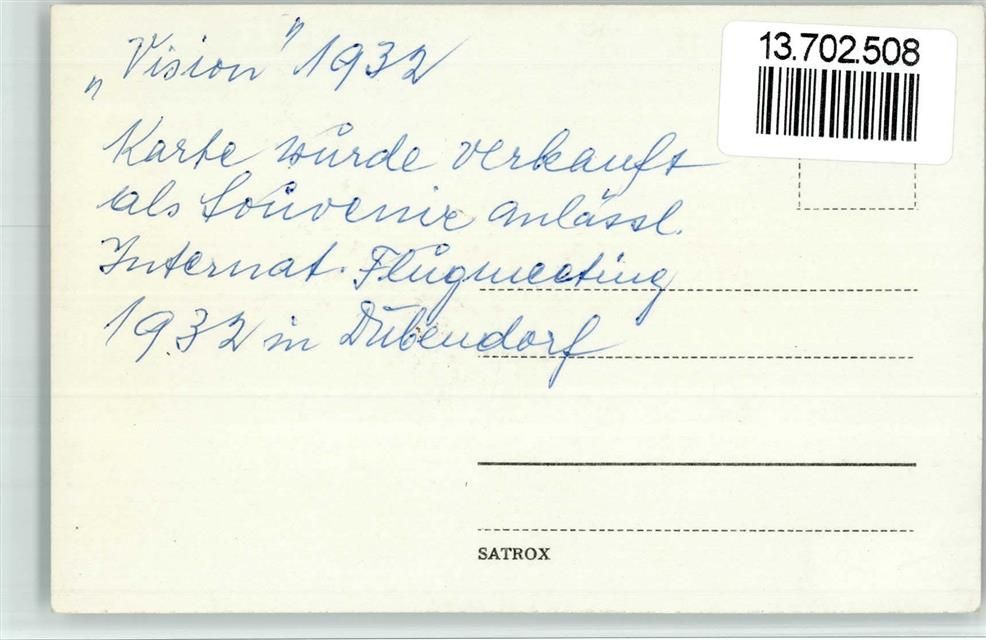 „Vision" 1932
13.702.508
Karte wurde verkauft
als Souvenir anlässl.
Internat. Flugmeeting
1932 in Dübendorf
SATROX